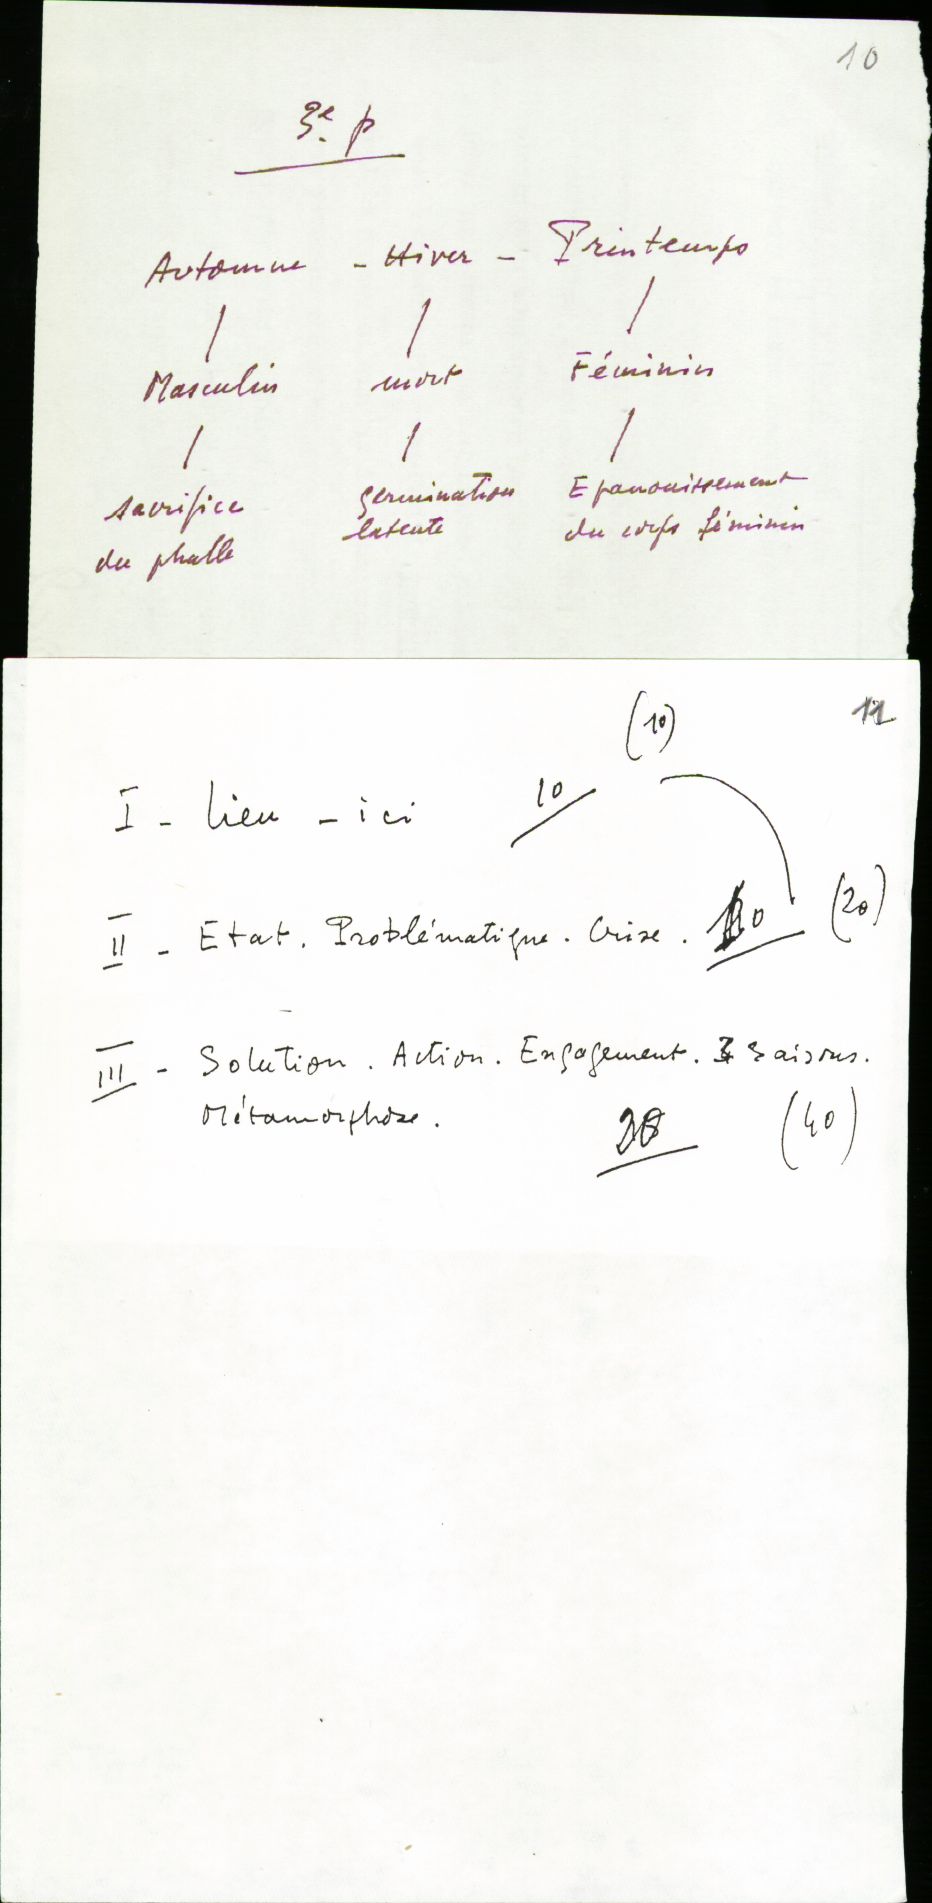 10
3e p
Automne - Hiver - Printemps
Masculin mort Féminin
sacrifice germination Epanouissement
du phalle latente du corps féminin
11
(10)
I - lieu - ici 10
II - Etat. Problématique. Crise. (20)
III - Solution. Action. Engagement. 3 saisons.
Métamorphose. (40)